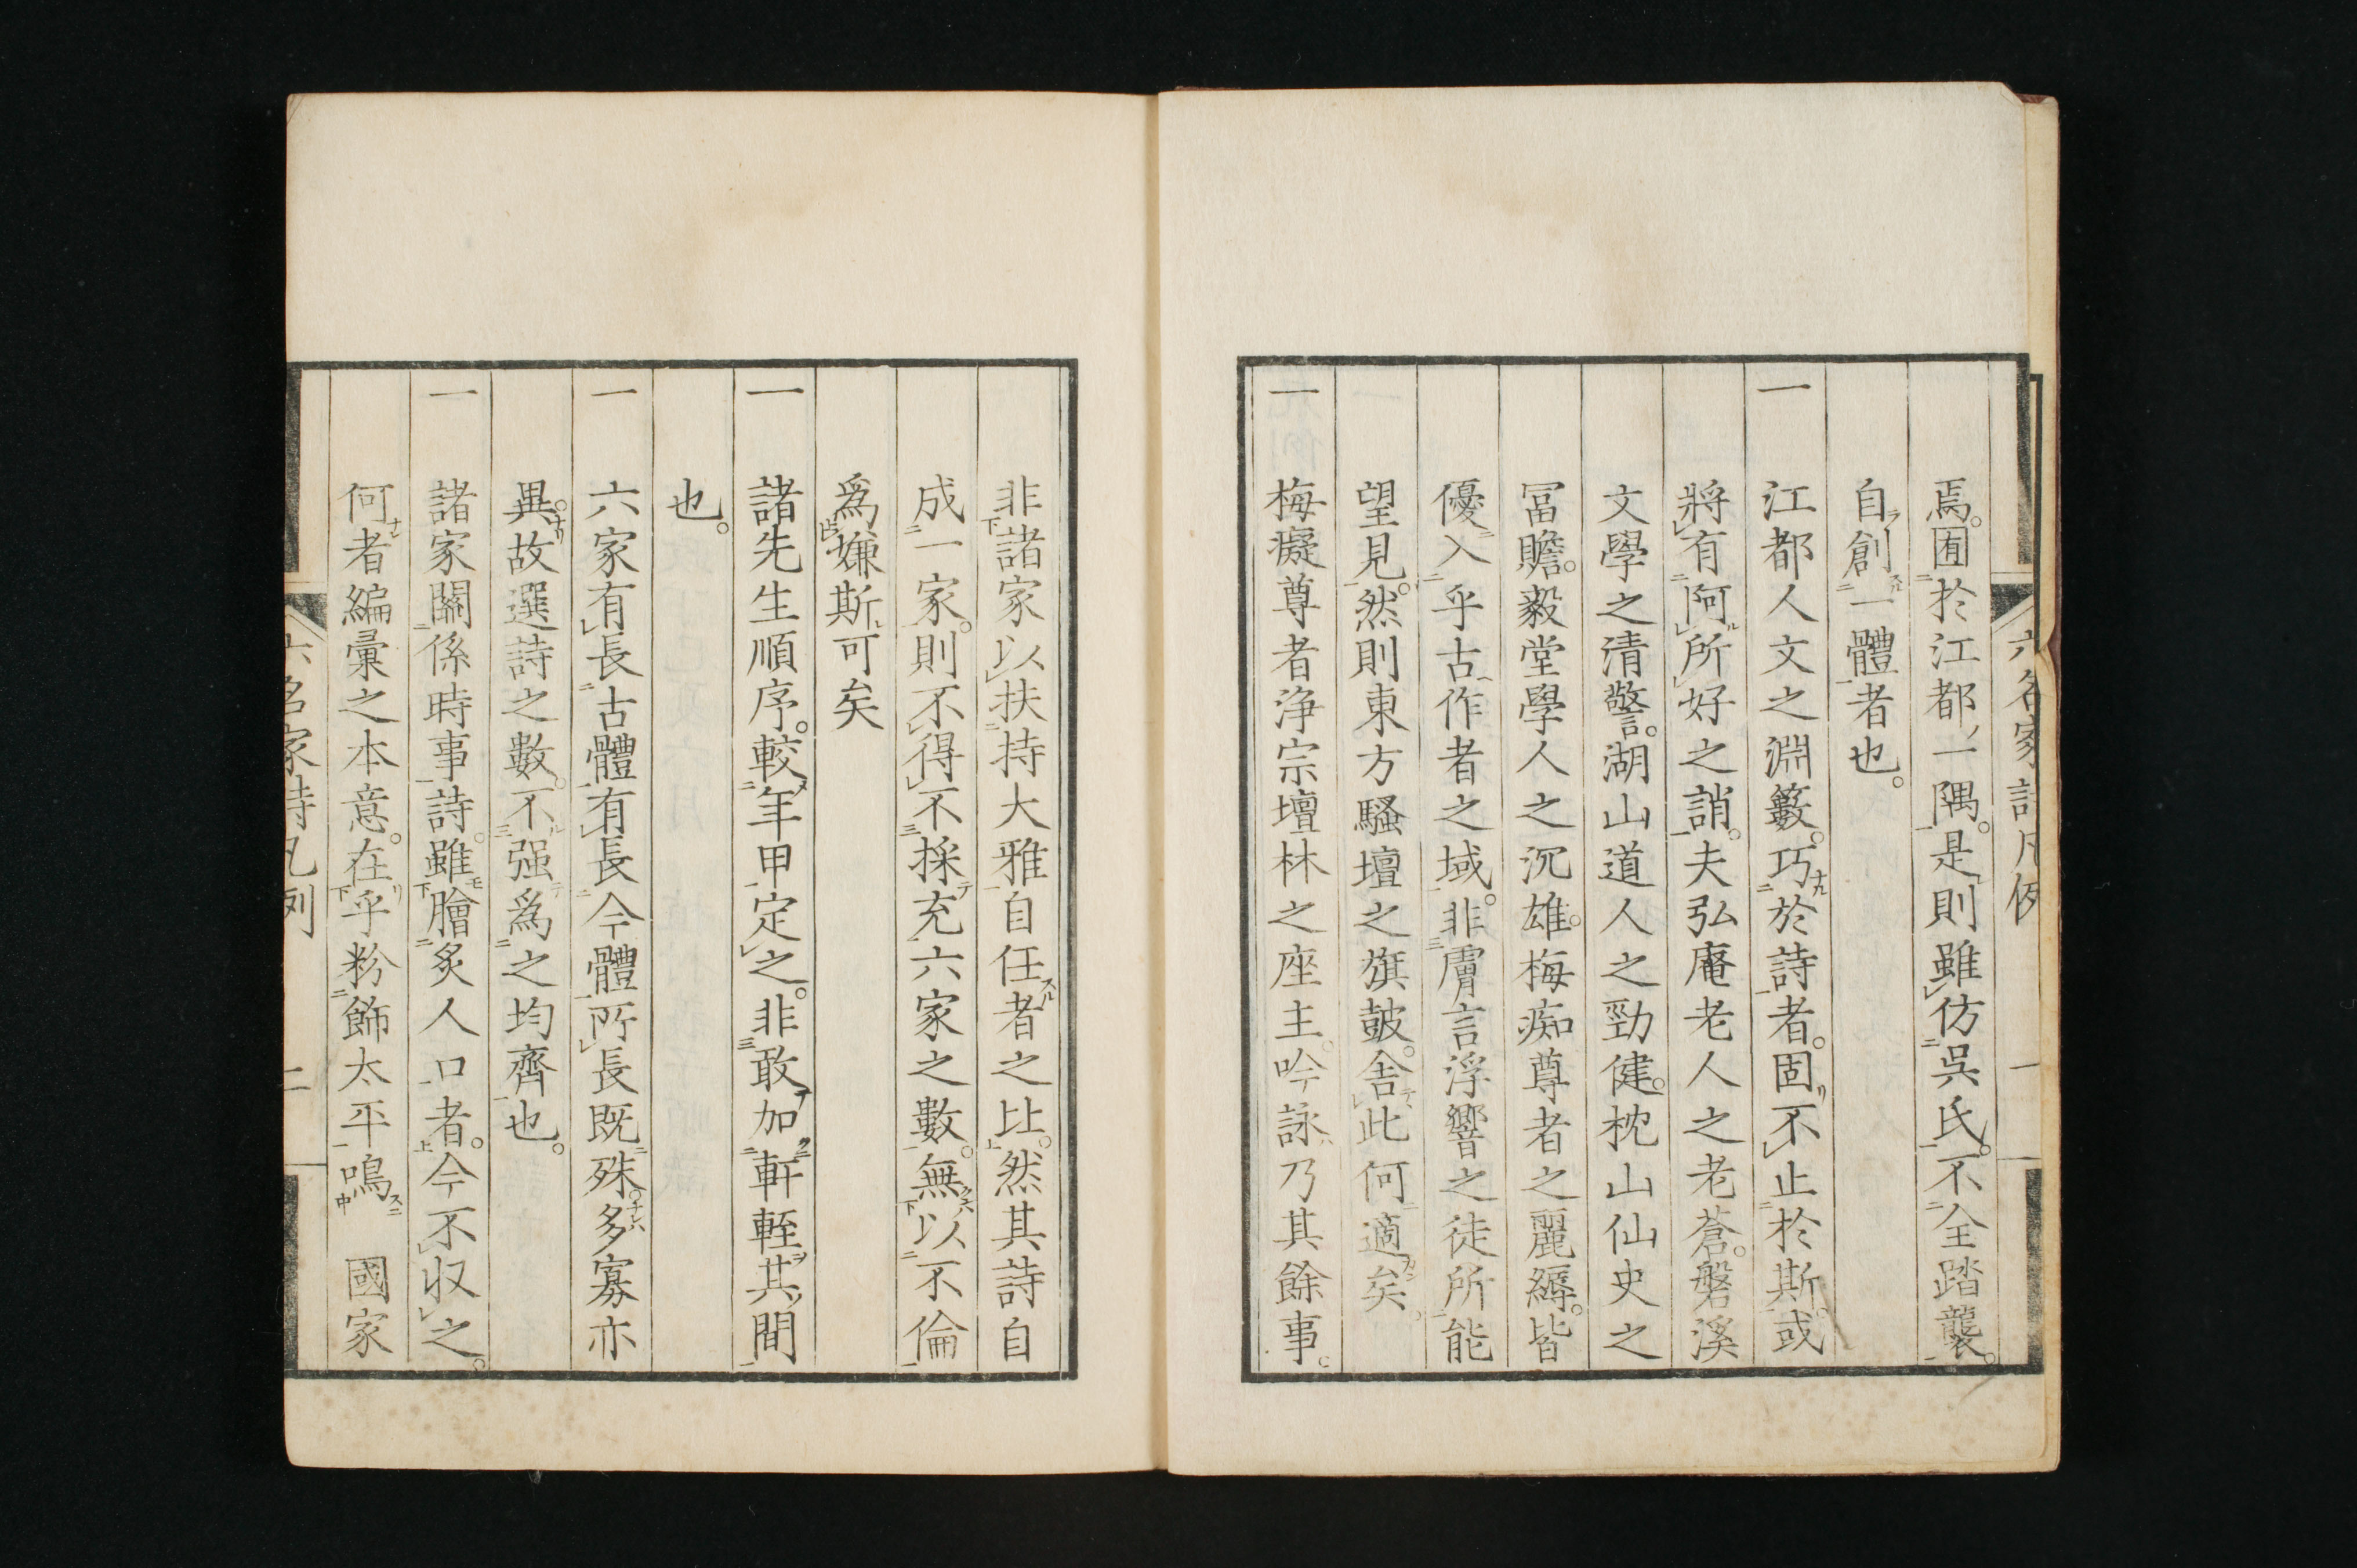 六名家詩凡例 一
焉。囿於江都一隅。是則雖仿吳氏。不全踏襲。
自創一體者也。
一 江都人文之淵籔。巧於詩者。固不止於斯。或
將有阿所好之誚。夫弘庵老人之老蒼。磐溪
文學之清警。湖山道人之勁健。枕山仙史之
冨贍。毅堂學人之沉雄。梅痴尊者之麗縟。皆
優入乎古作者之域。非膚言浮響之徒所能
望見。然則東方騷壇之旗皷。舎此何適矣。
一 梅癡尊者浄宗壇林之座主。吟詠乃其餘事。
非諸家以扶持大雅自任者之比。然其詩自
成一家。則不得不採充六家之數。無以不倫
爲嫌斯可矣
一 諸先生順序。較年甲定之。非敢加軒輊其間
也。
一 六家有長古體有長今體所長既殊。多寡亦
異。故選詩之數。不强爲之均齊也。
一 諸家關係時事詩。雖膾炙人口者。今不収之。
何者編彙之本意。在乎粉飾太平鳴 國家
六名家詩凡例 二